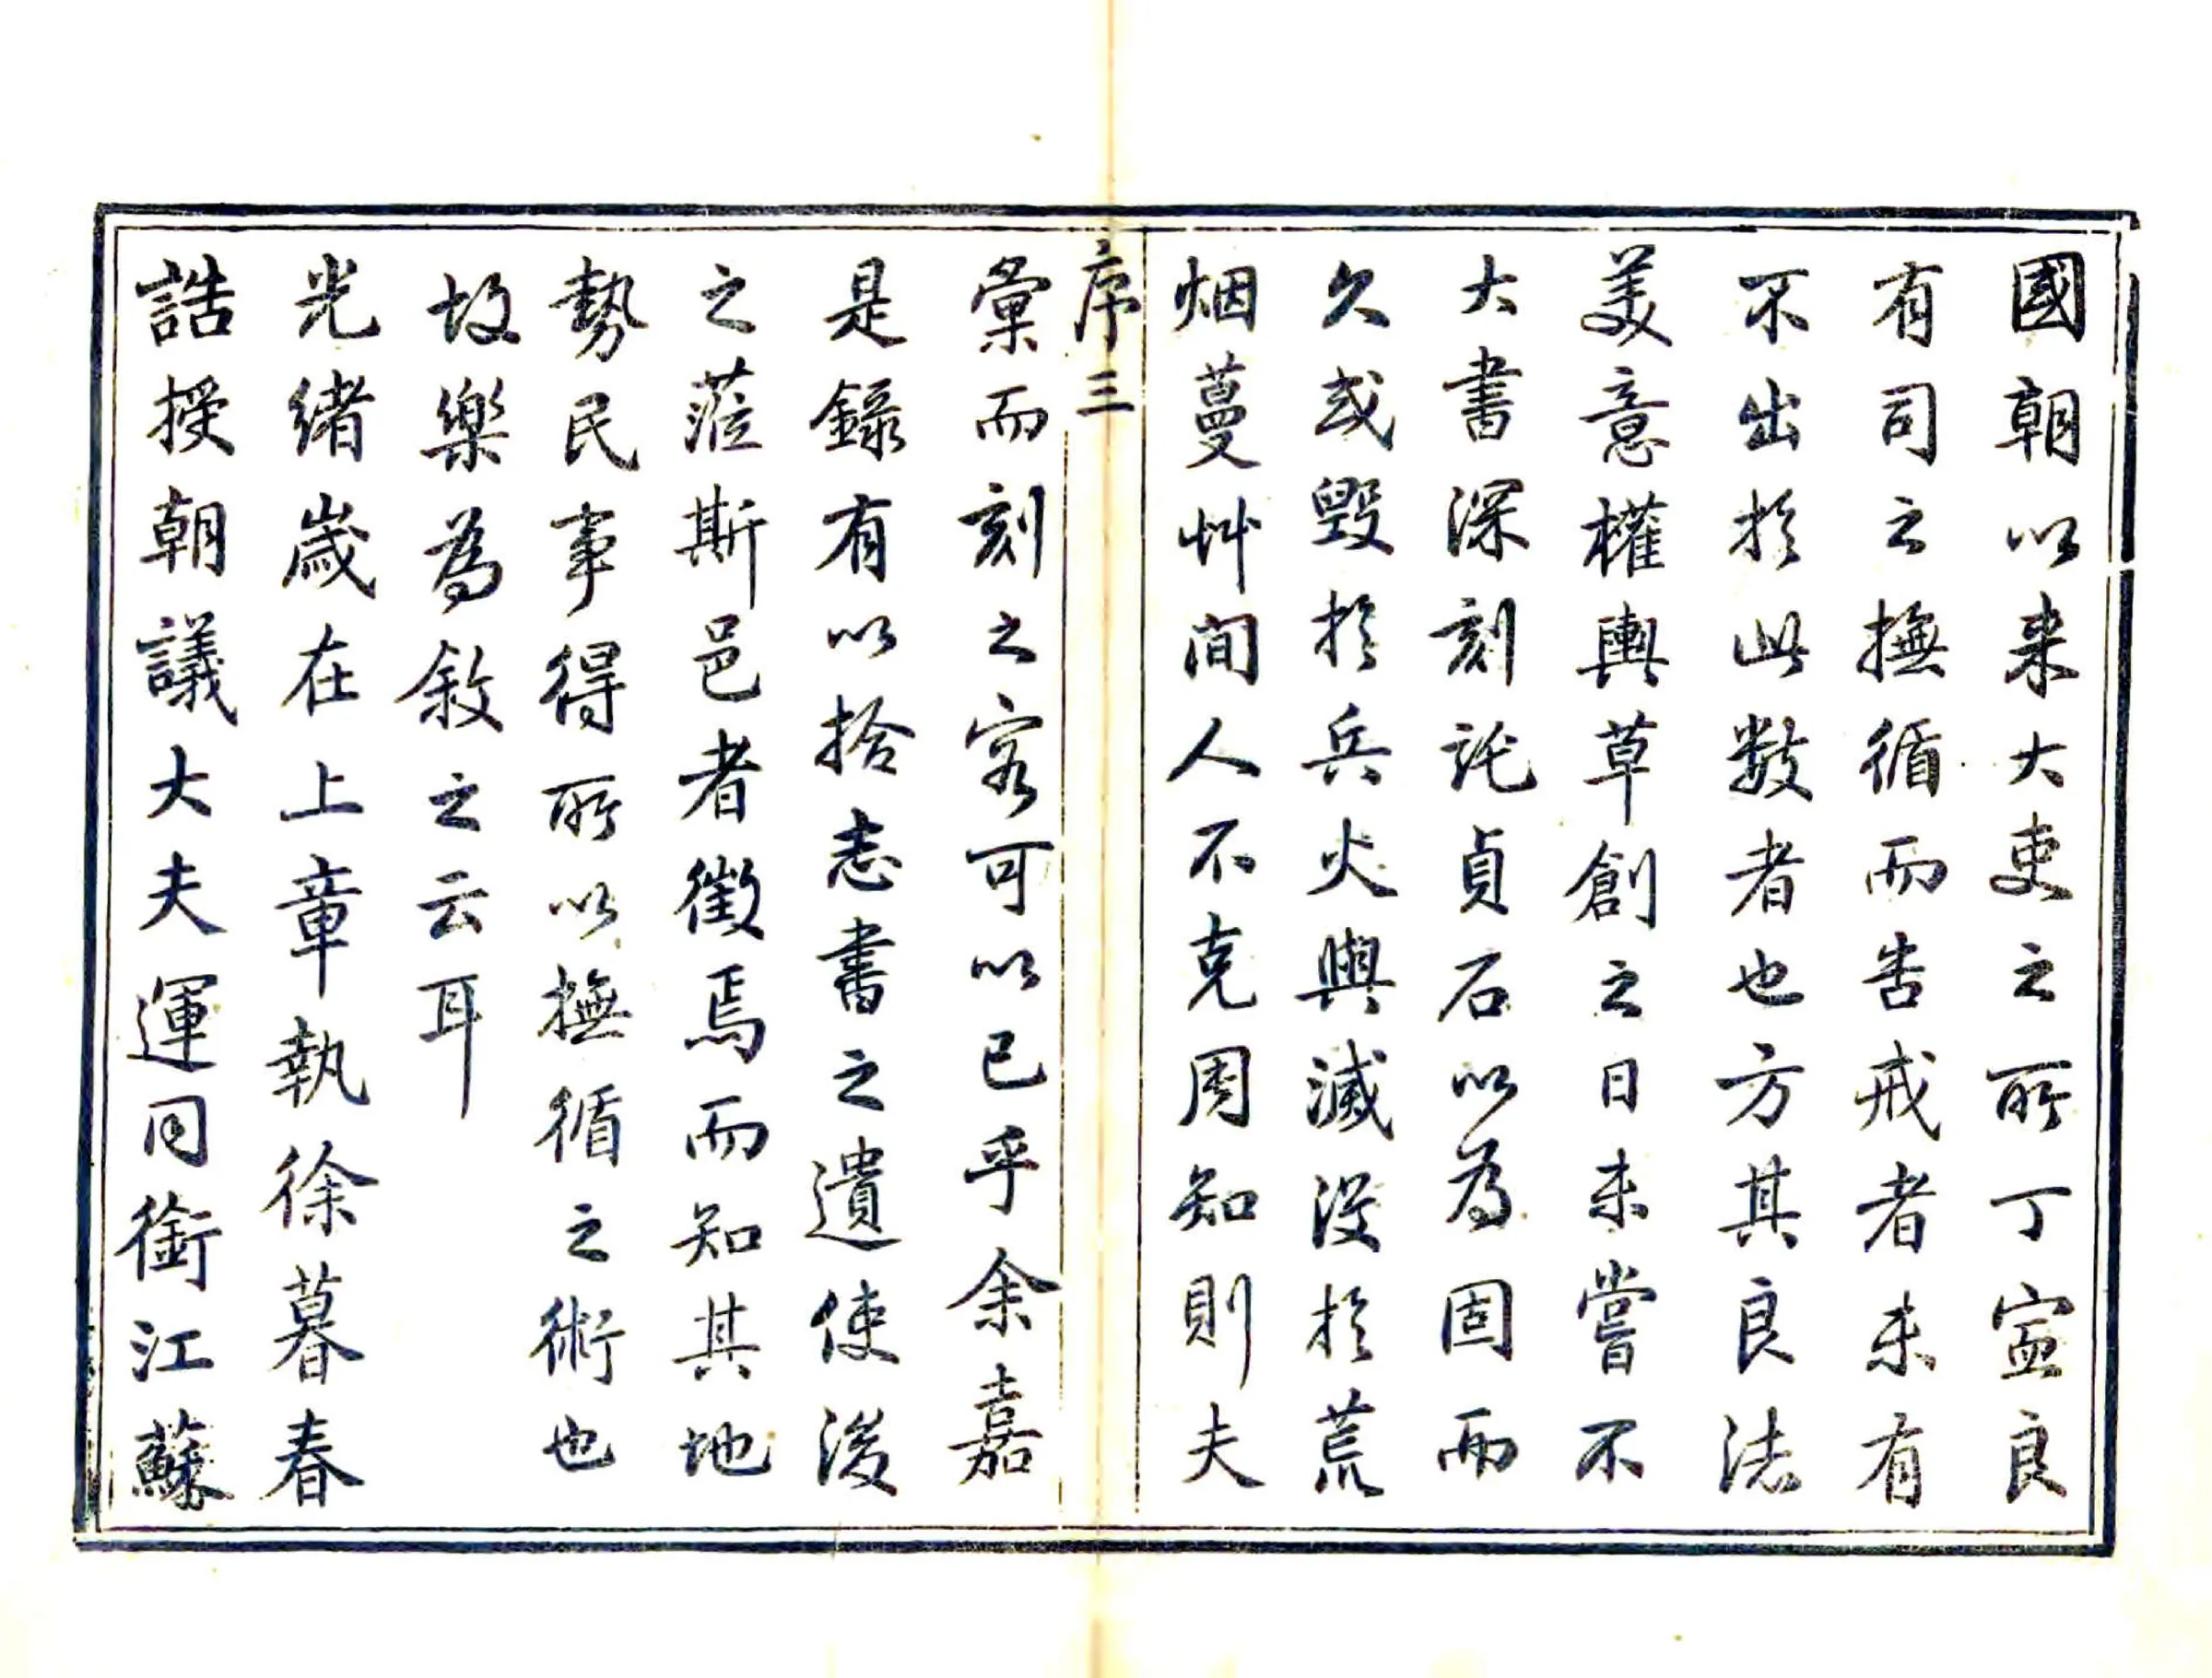 國朝以来大吏之所丁寍良
有司之撫循而告戒者未有
不出於此数者也方其良法
美意權輿草創之日未嘗不
大書深刻託貞石以為固而
久或毀於兵火與滅没於荒
烟蔓艸间人不克周知則夫
序三
彙而刻之寧可以已乎余嘉
是錄有以拾志書之遺使後
之蒞斯邑者徵焉而知其地
勢民事得所以撫循之術也
故樂為敘之云耳
光緒歲在上章執徐暮春
誥授朝議大夫運同銜江蘇